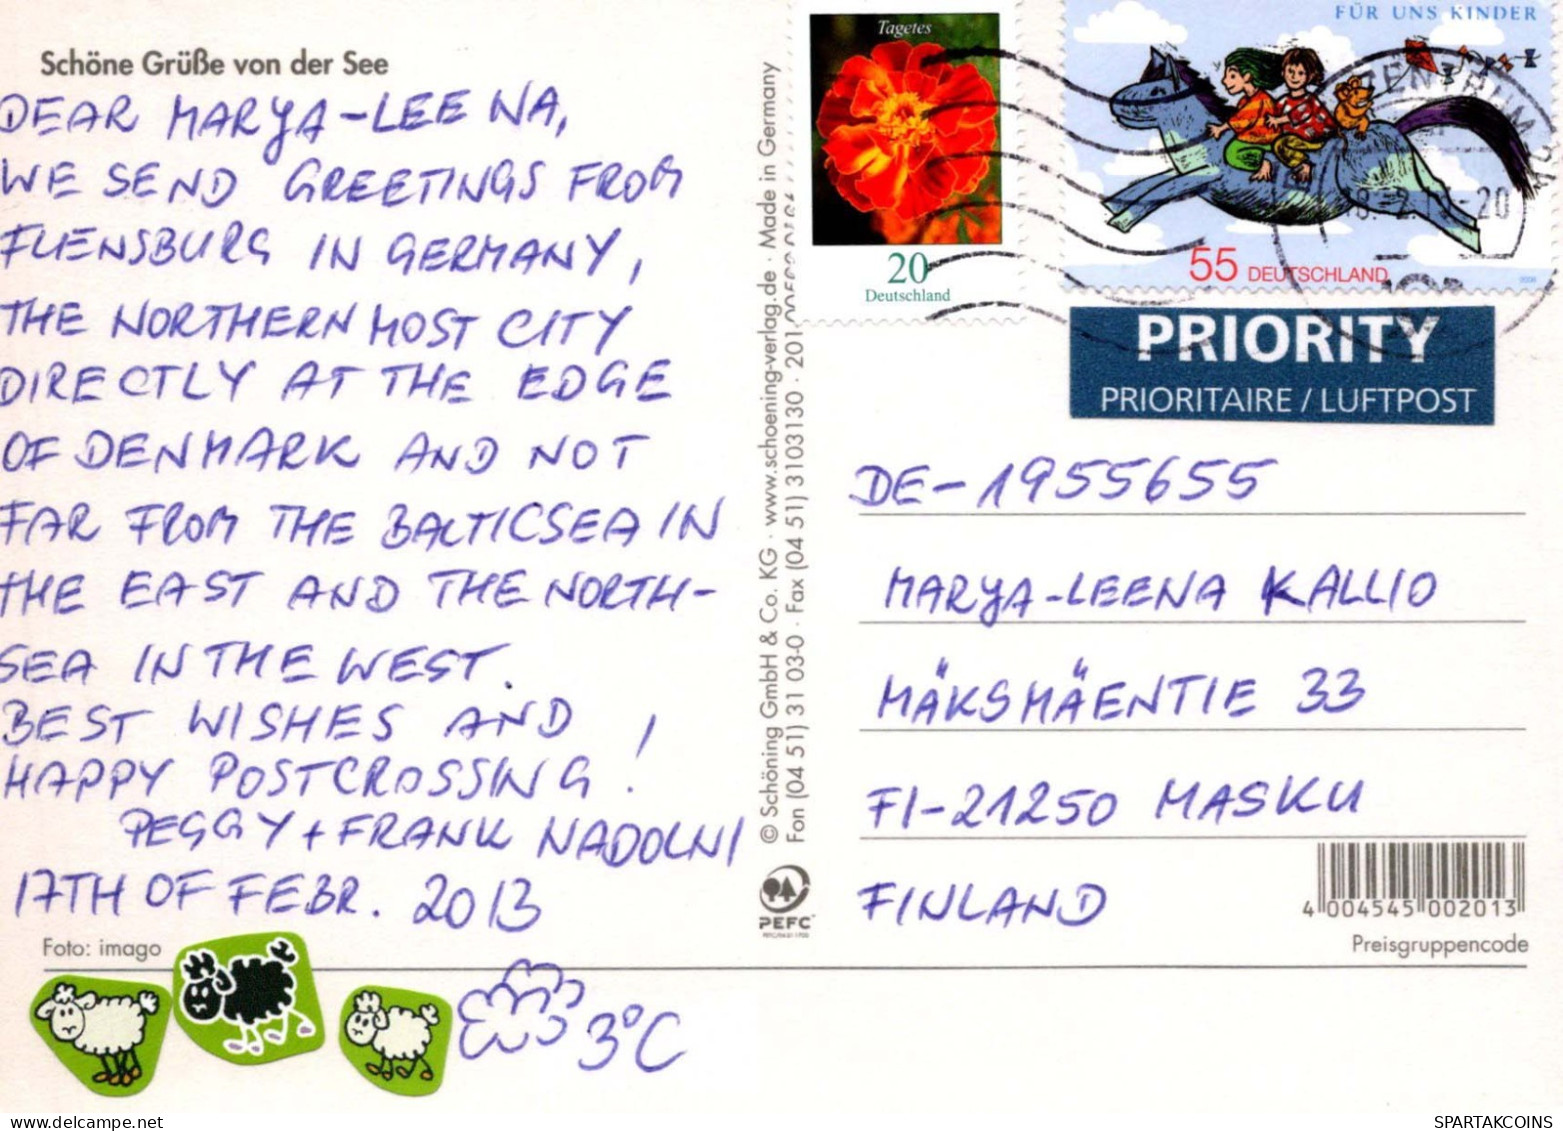 Schöne Grüße von der See
DEAR MARYA-LEENA,
WE SEND GREETINGS FROM
FLENSBURG IN GERMANY,
THE NORTHERNMOST CITY
DIRECTLY AT THE EDGE
OF DENMARK AND NOT
FAR FROM THE BALTICSEA IN
THE EAST AND THE NORTH-
SEA IN THE WEST.
BEST WISHES AND
HAPPY POSTCROSSING!
PEGGY + FRANK NADOLNI
17TH OF FEBR. 2013
Foto: imago
3°C
© Schöning GmbH & Co. KG · www.schoening-verlag.de · Made in Germany
Fon (04 51) 31 03-0 · Fax (04 51) 3103130 · 201
PEFC
Tagetes
20
Deutschland
FÜR UNS KINDER
55 DEUTSCHLAND
PRIORITY
PRIORITAIRE / LUFTPOST
DE-1955655
MARYA-LEENA KALLIO
MÄKSMÄENTIE 33
FI-21250 MASKU
FINLAND
4 004545 002013
Preisgruppencode
SPARTAKCOINS